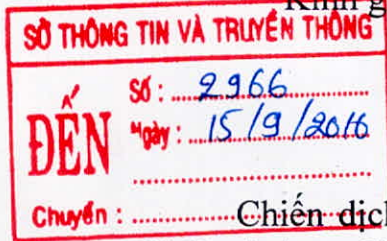 Kính g
SỞ THÔNG TIN VÀ TRUYỀN THÔNG
ĐẾN
Số : 2966
Ngày : 15/9/2016
Chuyển :
Chiến dịch